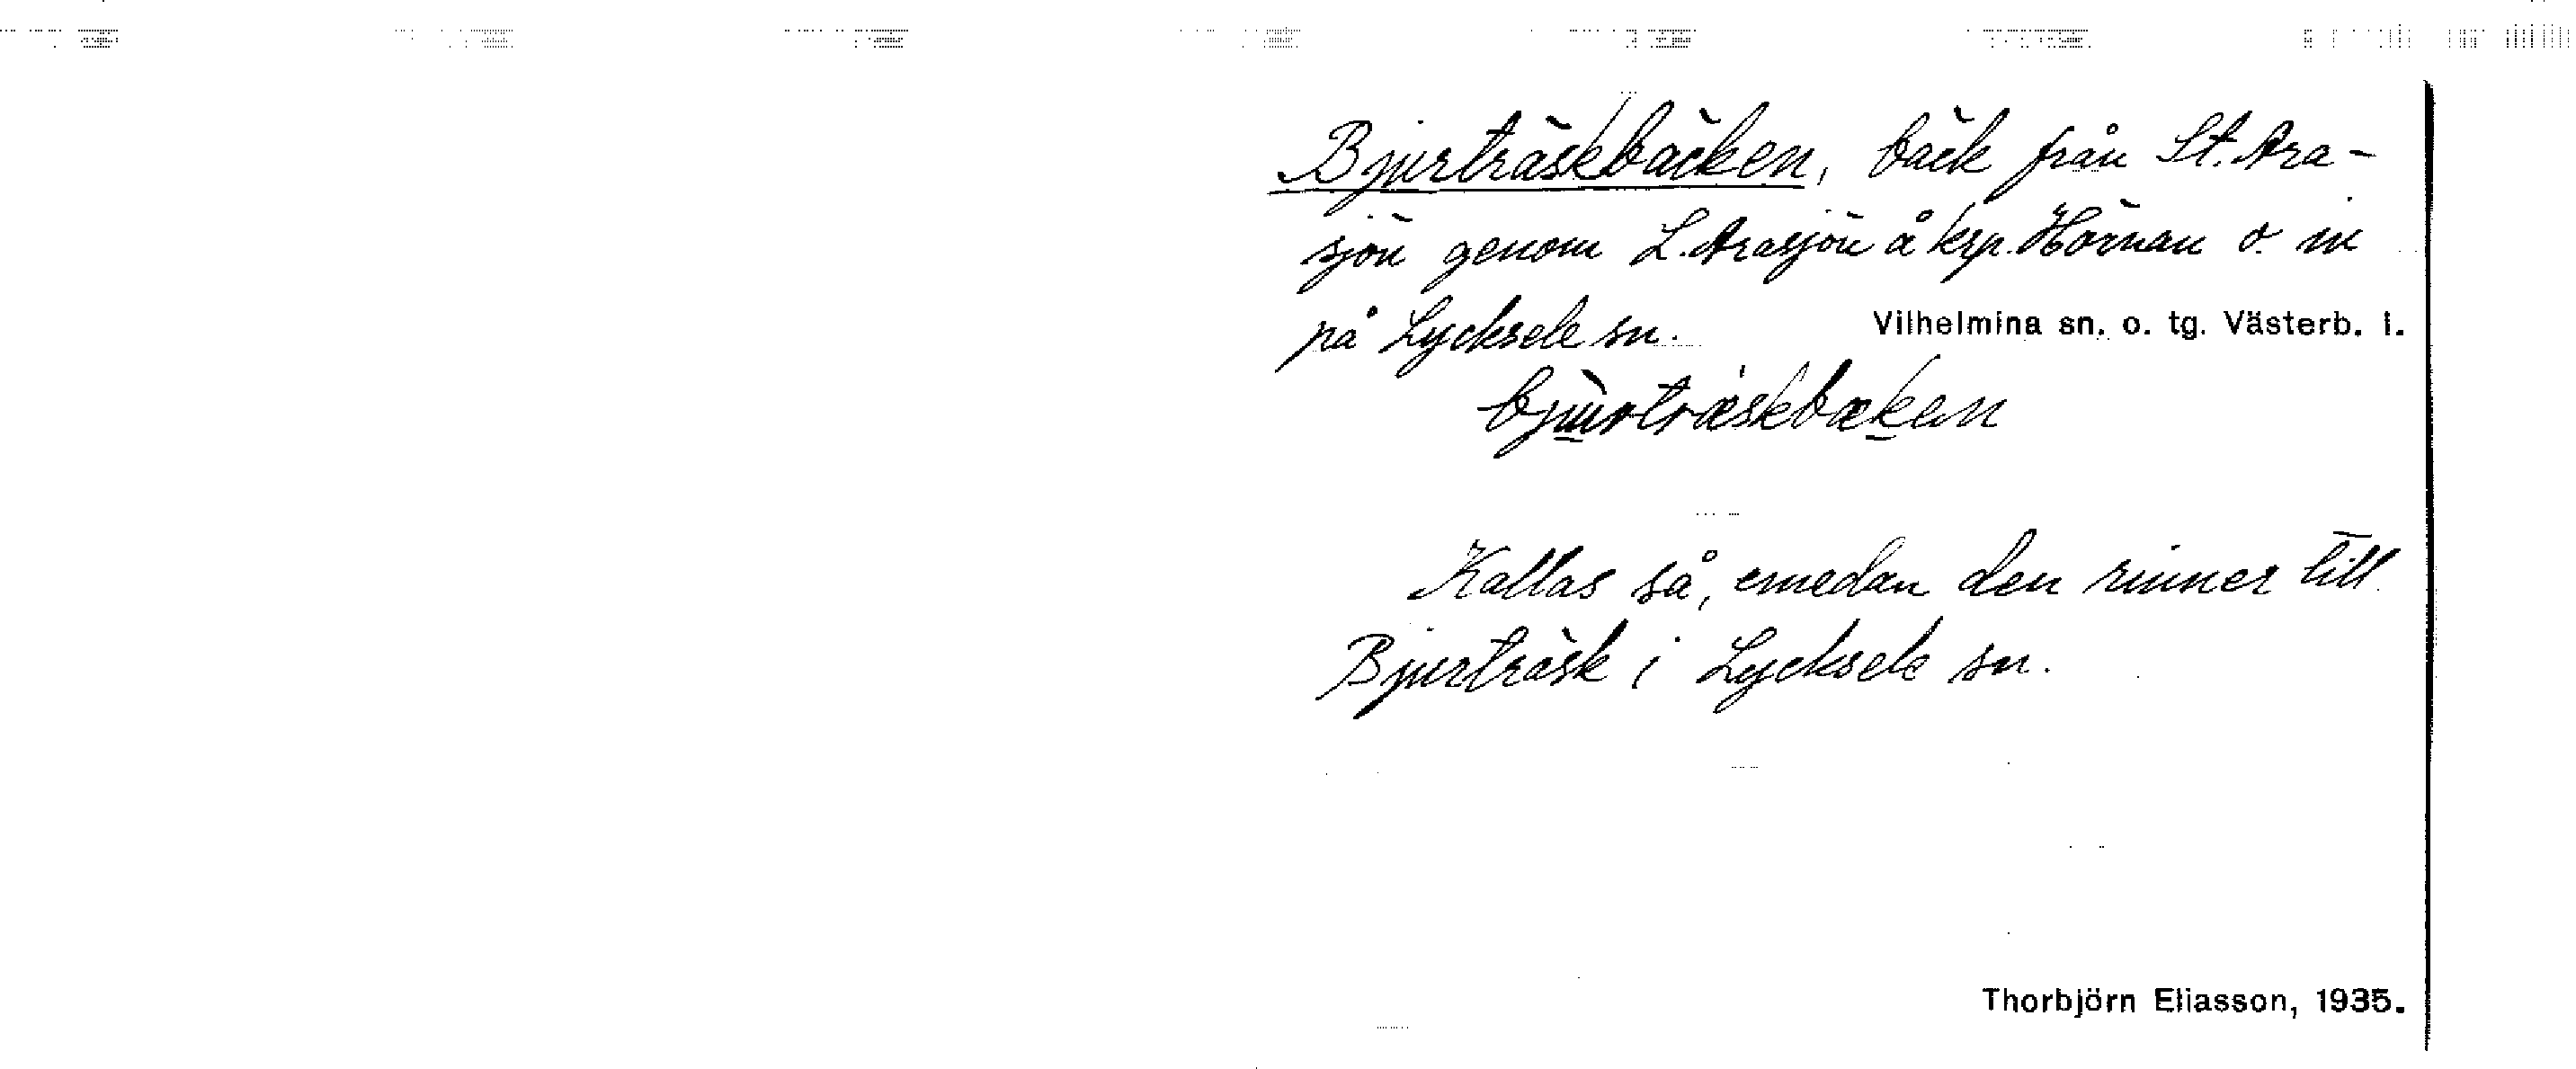 Bjurträskbäcken, bäck från St. Ara-
sjön genom L. Arasjön å krp. Hörnan o. in
på Lycksele sn. Vilhelmina sn. o. tg. Västerb. l.
bjùrtræskbæken
Kallas så, emedan den rinner till
Bjurträsk i Lycksele sn.
Thorbjörn Eliasson, 1935.